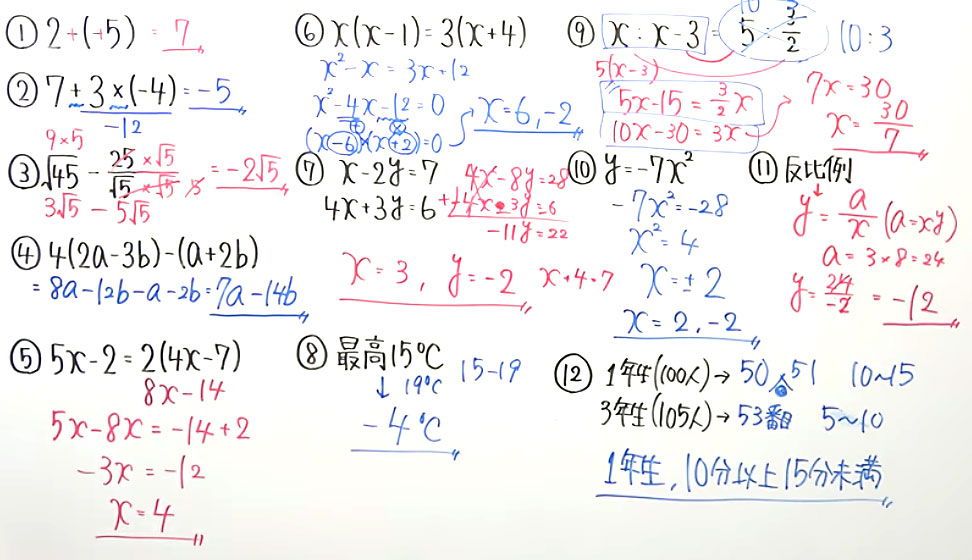 ① 2+(+5) = 7
② 7+3×(-4) = -5
-12
9×5
③ √45 - 25×√5/√5×√5 5 = -2√5
3√5 - 5√5
④ 4(2a-3b)-(a+2b)
= 8a-12b-a-2b = 7a-14b
⑤ 5x-2=2(4x-7)
8x-14
5x-8x=-14+2
-3x=-12
x=4
⑥ x(x-1)=3(x+4)
x²-x=3x+12
x²-4x-12=0
(x-6)(x+2)=0
x=6,-2
⑦ x-2y=7
4x+3y=6
4x-8y=28
-11y=22
x=3, y=-2
x+4=7
⑧ 最高15℃
↓ 19℃
15-19
-4℃
⑨ x:x-3=5:3/2
10 3
10:3
5(x-3)
5x-15=3/2x
10x-30=3x
7x=30
x=30/7
⑩ y=-7x²
-7x²=-28
x²=4
x=±2
x=2,-2
⑪ 反比例
↓
y=a/x (a=xy)
a=3×8=24
y=24/-2 = -12
⑫ 1年生(100人)→50 51 10~15
3年生(105人)→53番 5~10
1年生,10分以上15分未満